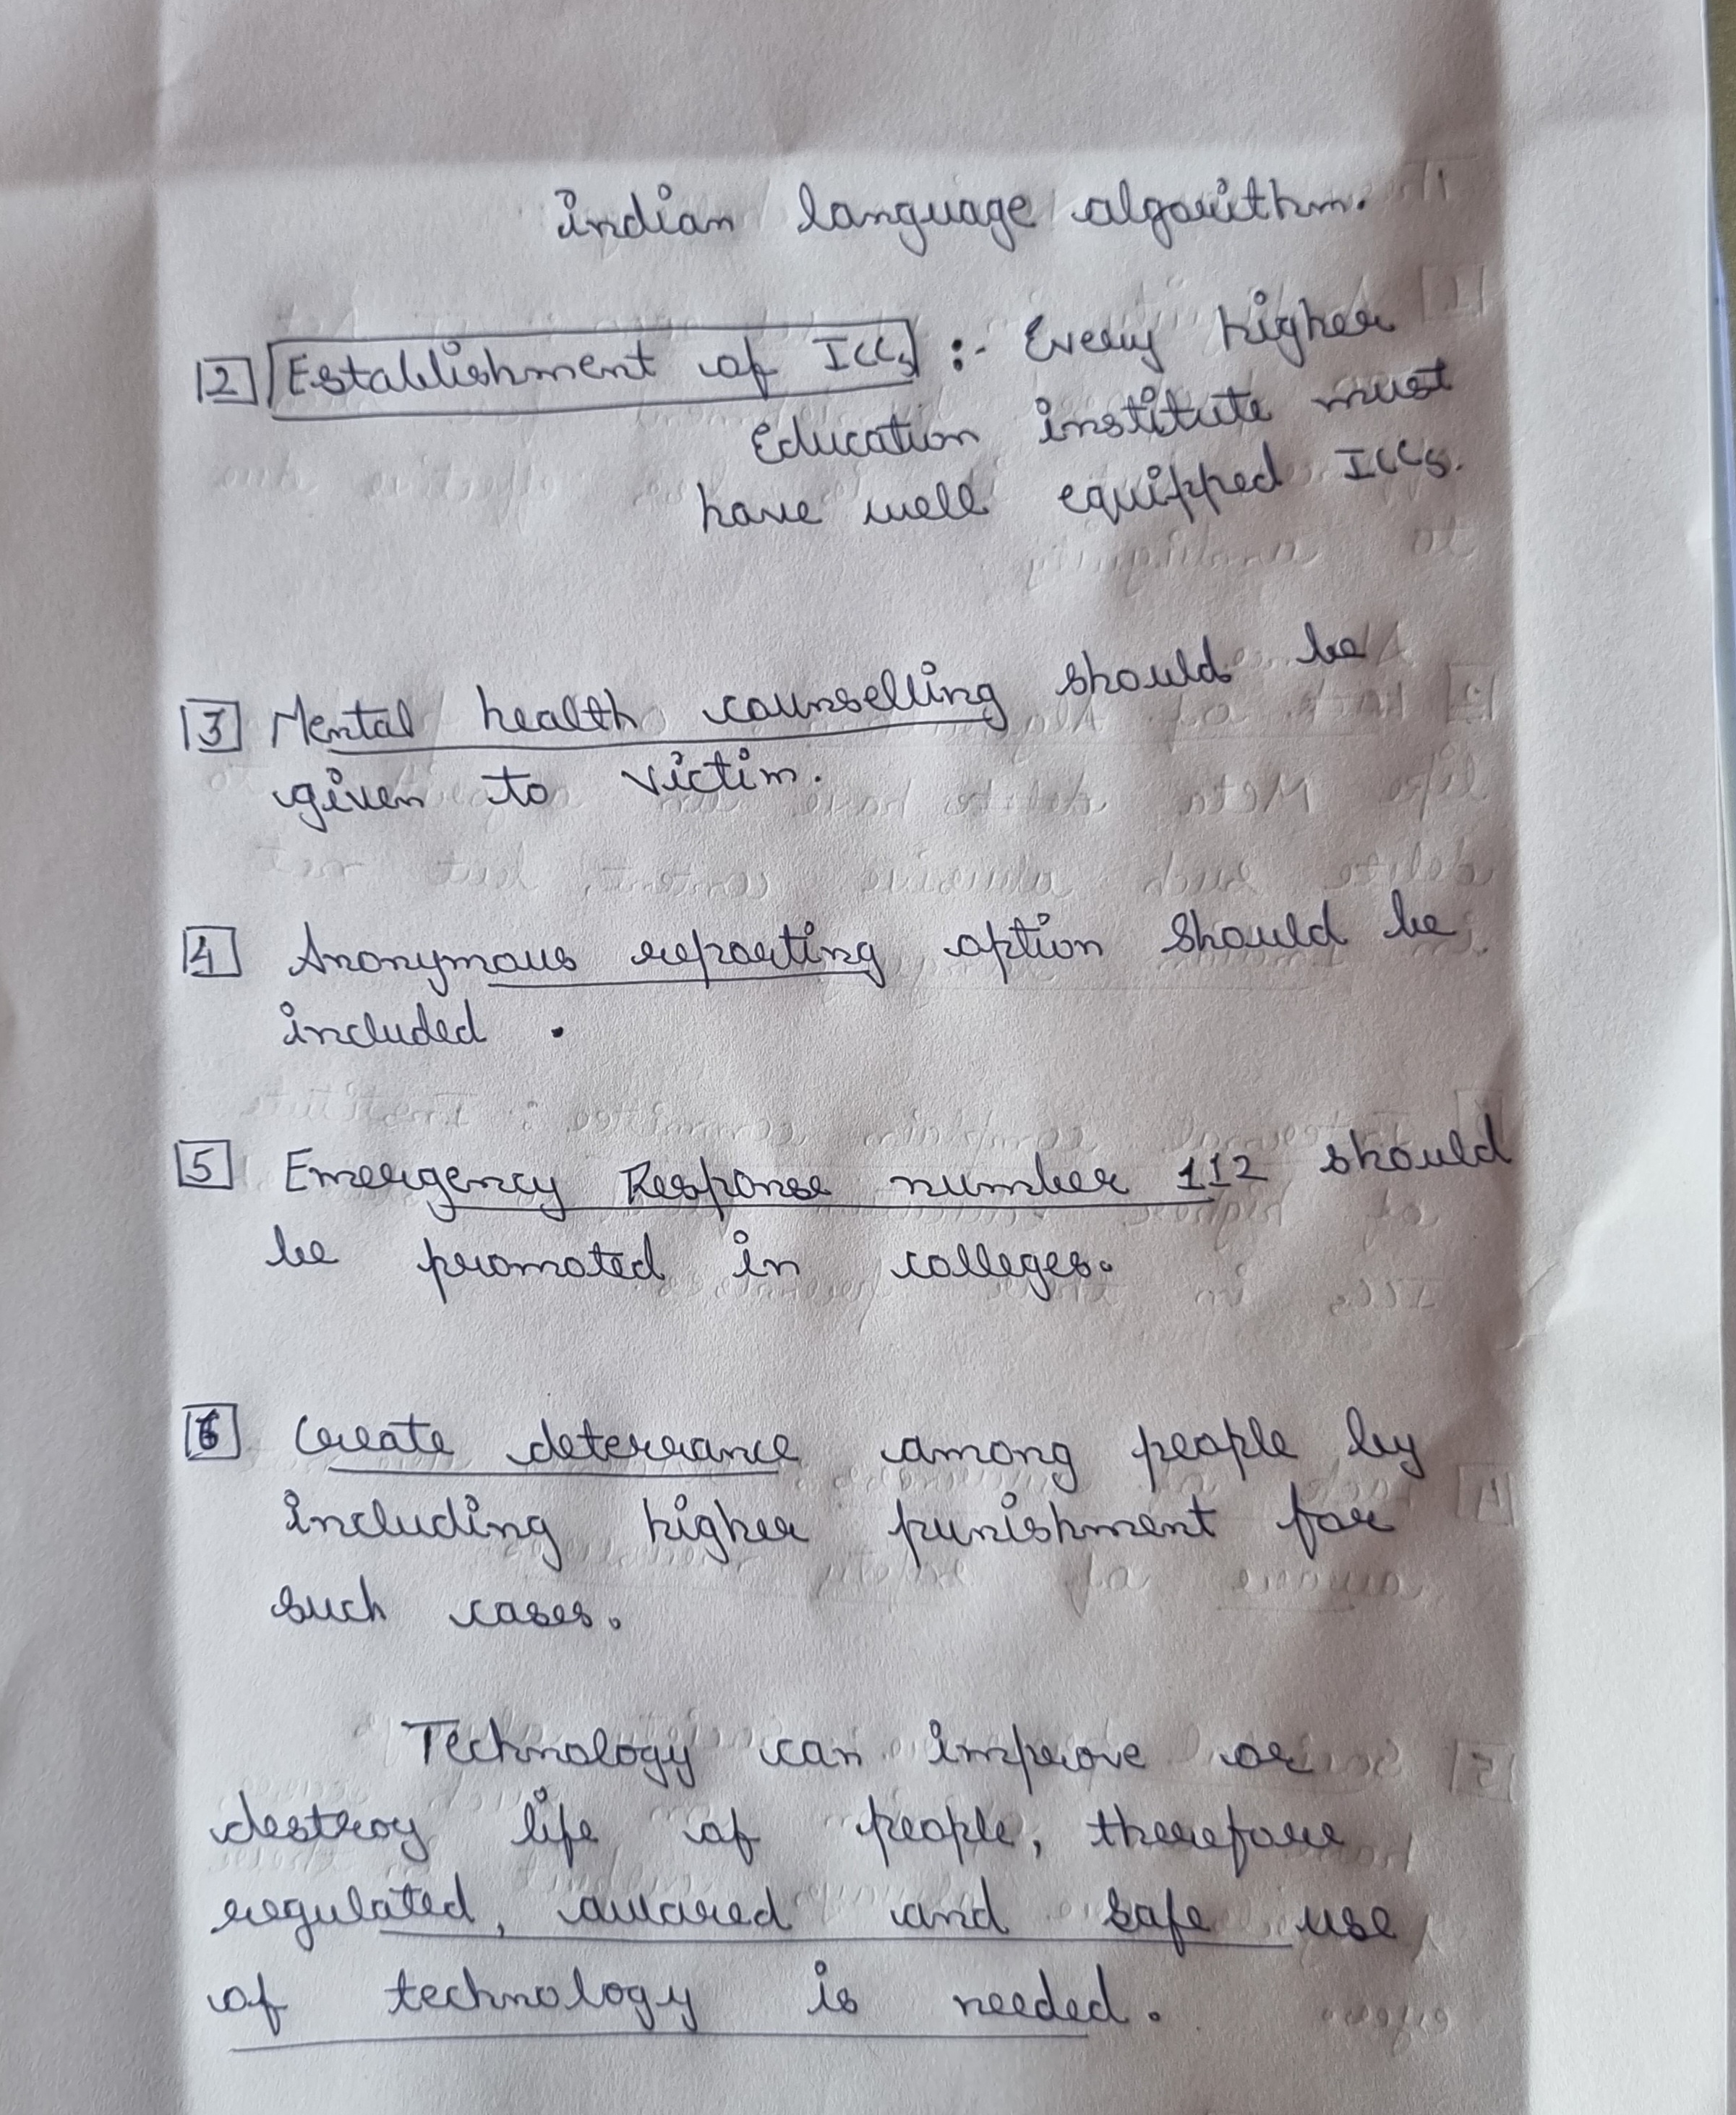 indian language algorithm.
2 Establishment of ICCs :- Every higher
Education institute must
have well equipped ICCs.
3 Mental health counselling should be
given to victim.
4 Anonymous reporting option should be
included .
5 Emergency Response number 112 should
be promoted in colleges.
6 Create deterrance among people by
including higher punishment for
such cases.
Technology can improve or
destroy life of people, therefore
regulated, awared and safe use
of technology is needed.